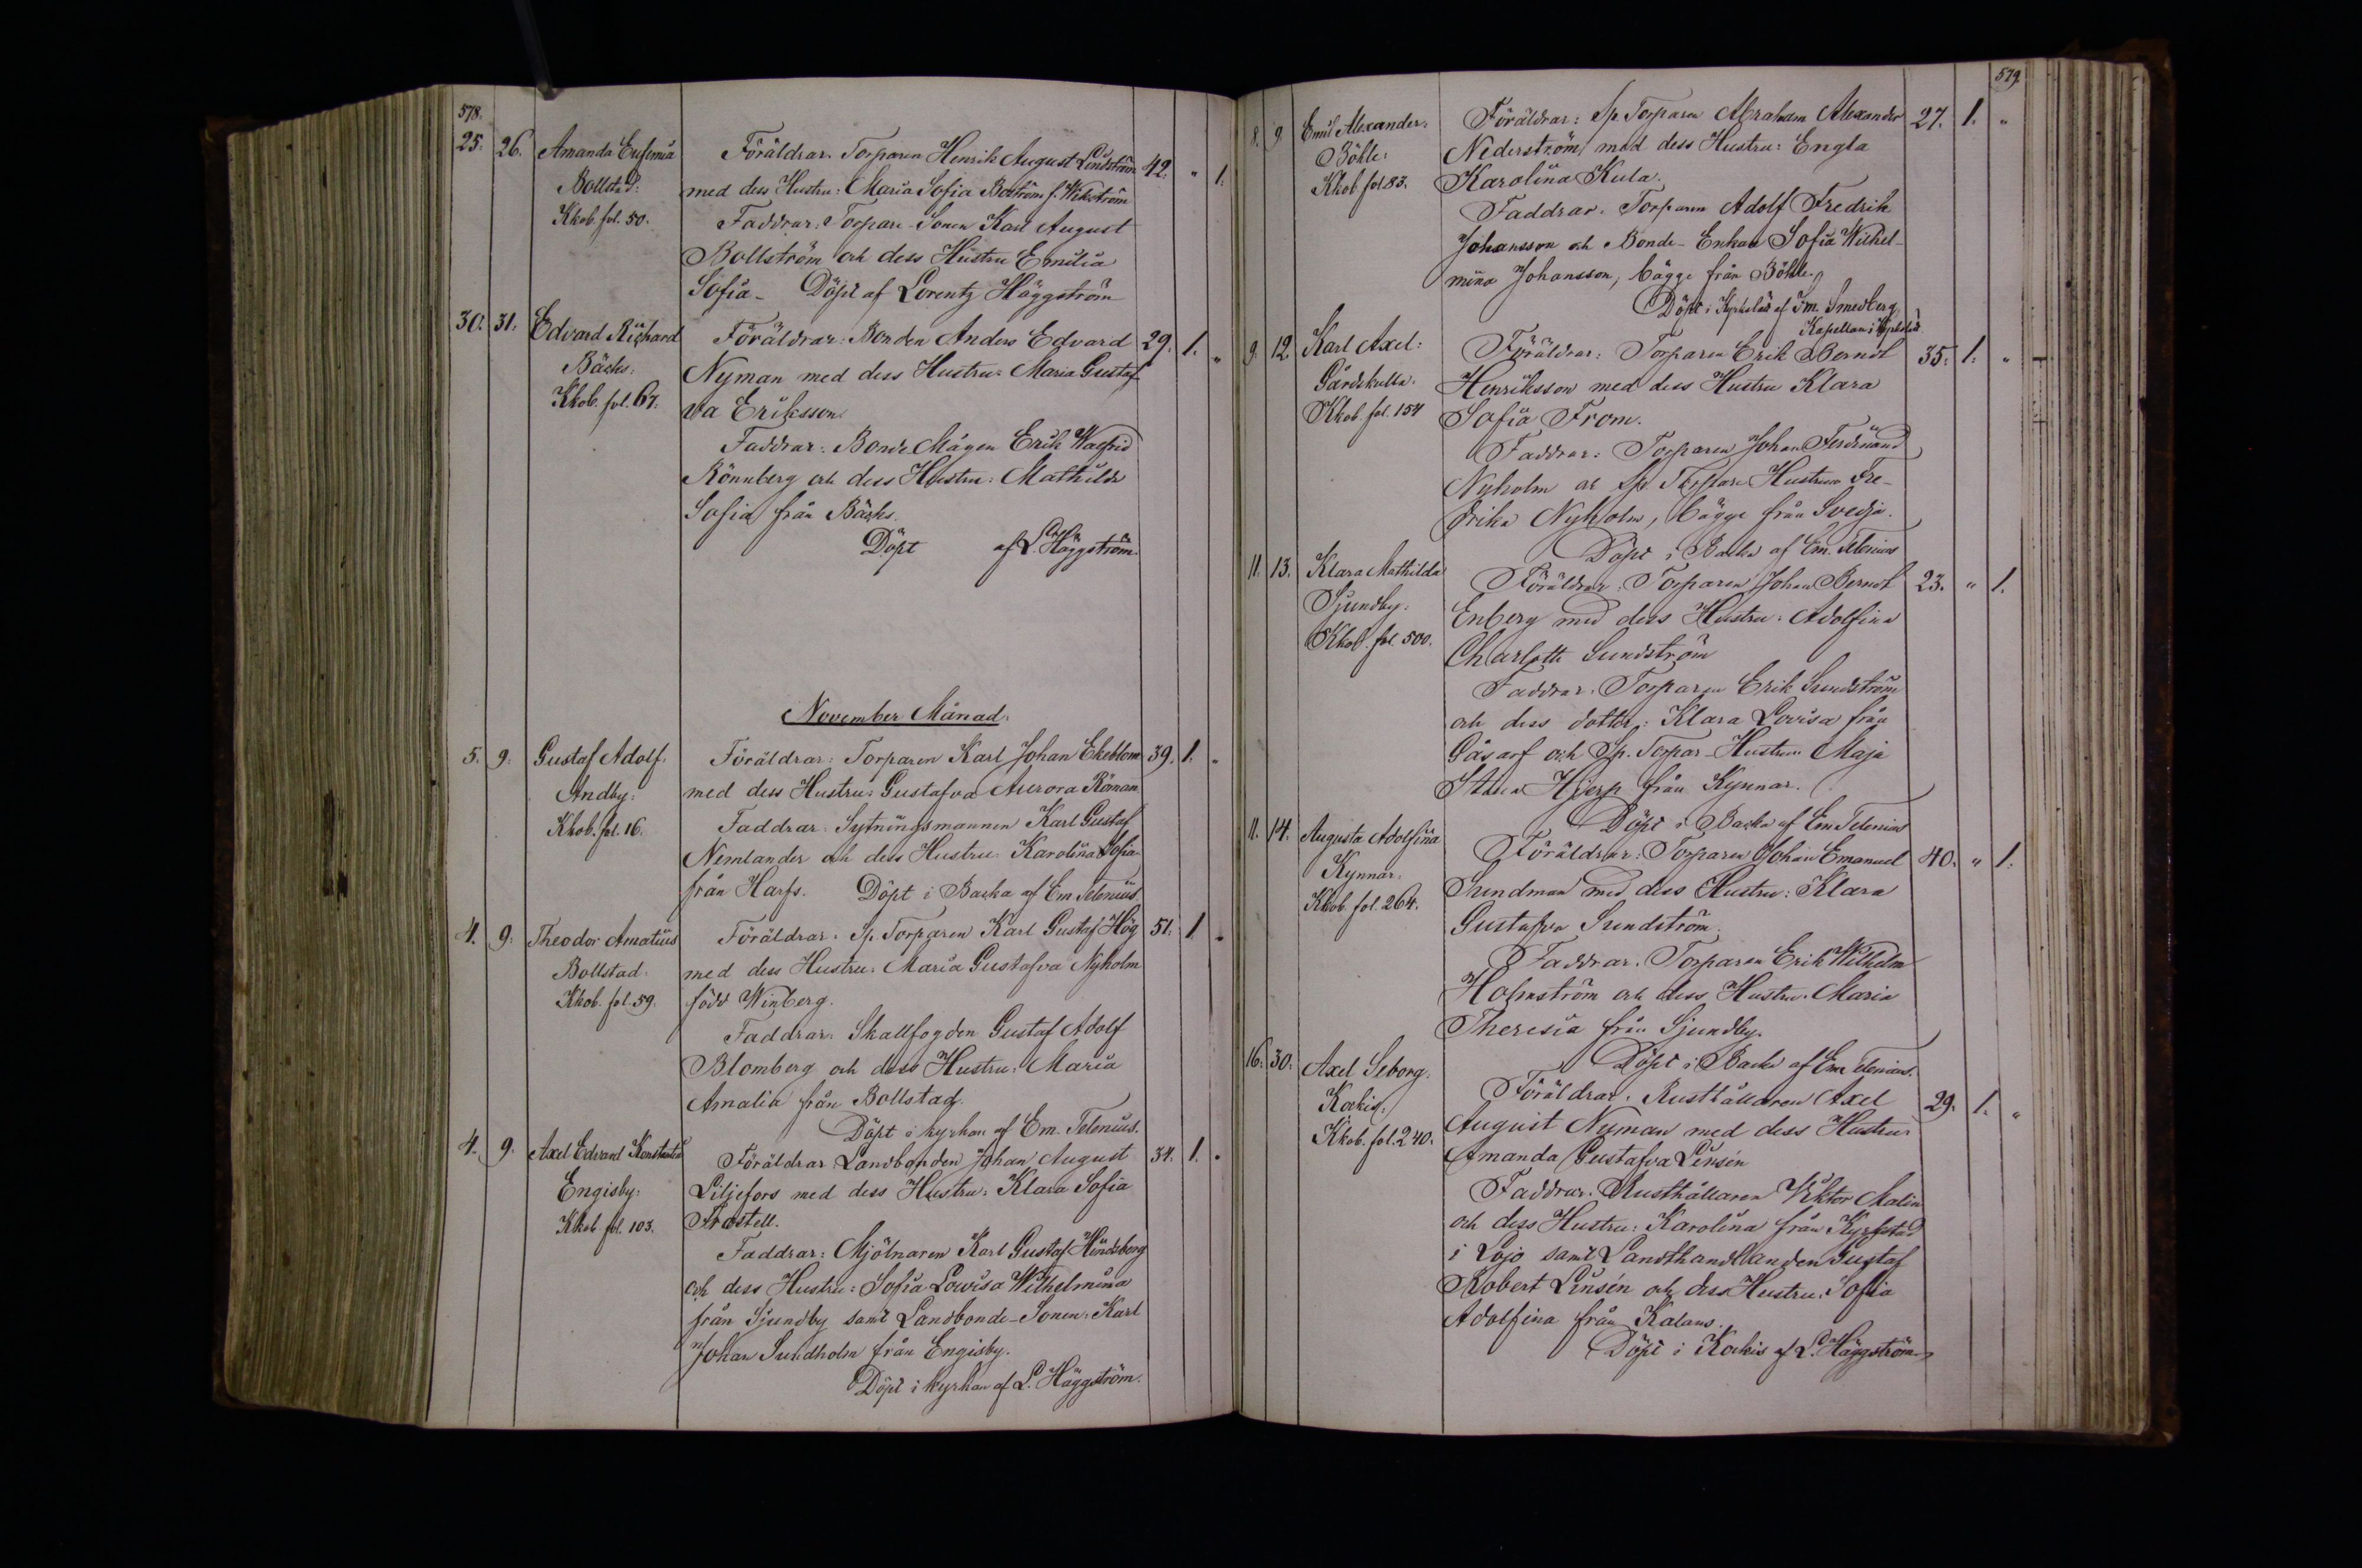 578.
25. 26. Amanda Eufemia Föräldrar. Torparen Henrik August Lindström 42. " 1.
Bollstad: med dess Hustru: Maria Sofia Boström f. Wikström
Kkob. fol. 50. Faddrar: Torpare-Sonen Karl August
Bollström och dess Hustru Emilia
Sofia- Döpt af Lorentz Häggström
30. 31. Edvard Richard Föräldrar: Bonden Anders Edvard 29. 1. "
Bäcks: Nyman med dess Hustru: Maria Gustaf
Kkob. fol. 67. va Eriksson.
Faddrar: Bonde Mågen Erik Walfrid
Rönnberg och dess Hustru: Mathilda
Sofia från Bäcks.
Döpt af L. Häggström.
November Månad.
5. 9. Gustaf Adolf. Föräldrar: Torparen Karl Johan Ekeblom 39. 1. "
Andby: med dess Hustru: Gustafva Aurora Röman
Kkob. fol. 16. Faddrar: Sytningsmannen Karl Gustaf
Nemlander och dess Hustru: Karolina Sofia
från Harfs. Döpt i Backa af Em. Telenius
4. 9. Theodor Amatius Föräldrar. Sp. Torparen Karl Gustaf Hög 51. 1. "
Bollstad. med dess Hustru: Maria Gustafva Nyholm
Kkob. fol. 59. född Winberg.
Faddrar. Skallfogden Gustaf Adolf
Blomberg och dess Hustru: Maria
Amalia från Bollstad.
Döpt i kyrkan af Em. Telenius.
4. 9. Axel Edvard Konstantin Föräldrar Landbonden Johan August 34. 1. "
Engisby: Liljefors med dess Hustru: Klara Sofia
Kkob. fol. 103. Frostell.
Faddrar: Mjölnaren Karl Gustaf Hindsberg
och dess Hustru: Sofia Lowisa Wilhelmina
från Sjundby samt Landbonde-Sonen: Karl
Johan Sundholm från Engisby.
Döpt i kyrkan af L. Häggström.
579.
8. 9. Emil Alexander: Föräldrar: Sp. Torparen Abraham Alexander 27. 1. "
Böhle: Nederström med dess Hustru: Engla
Kkob fol. 83. Karolina Kula.
Faddrar. Torparen Adolf Fredrik
Johansson och Bonde-Enkan Sofia Wilhel-
mina Johansson, bägge från Böhle.
Döpt i Kyrkslätt af Fm. Smedberg
Kapellan i Kyrkslätt
9. 12. Karl Axel: Föräldrar: Torparen Erik Berndt 35. 1. "
Gårdskulla. Henriksson med dess Hustru Klara
Kkob. fol. 154 Sofia From.
Faddrar: Torparen Johan Ferdinand
Nyholm och Sp. Torpare Hustrun Fre-
drika Nyholm, bägge från Svedja.
Döpt i Backa af Em. Telenius
11. 13. Klara Mathilda Föräldrar: Torparen Johan Berndt 23. " 1.
Sjundby. Enberg med dess Hustru: Adolfina
Kkob. fol. 500. Charlotta Sundström
Faddrar. Torparen Erik Sundström
och dess dotter: Klara Lovisa från
Gåsarf och Sp. Torpar-Hustrun Maja
Stina Hjerp från Kynnar.
Döpt i Backa af Em Telenius
11. 14. Augusta Adolfina Föräldrar: Torparen Johan Emanuel 40. " 1.
Kynnar. Sundman med dess Hustru: Klara
Kkob. fol. 264. Gustafva Sundström.
Faddrar. Torparen Erik Wilhelm
Holmström och dess Hustru. Maria
Theresia från Sjundby.
Döpt i Backa af Em Telenius.
16. 30. Axel Seborg. Föräldrar. Rusthållaren Axel 29. 1. "
Kockis: August Nyman med dess Hustru
Kkob. fol. 240. Amanda Gustafva Linsén
Faddrar. Rusthållaren Viktor Malin
och dess Hustru: Karolina från Kyrkstad
i Lojo samt Landthandlanden Gustaf
Robert Linsén och dess Hustru: Sofia
Adolfina från Kalans.
Döpt i Kockis af L. Häggström